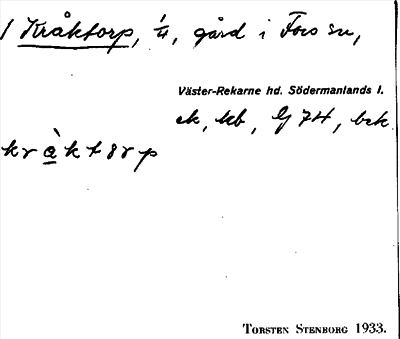 / Kråktorp, 1/4, gård i Fors sn,
Väster-Rekarne hd. Södermanlands l.
ek, kb, Gj 74, bek.
kråktørp
TORSTEN STENBORG 1933.